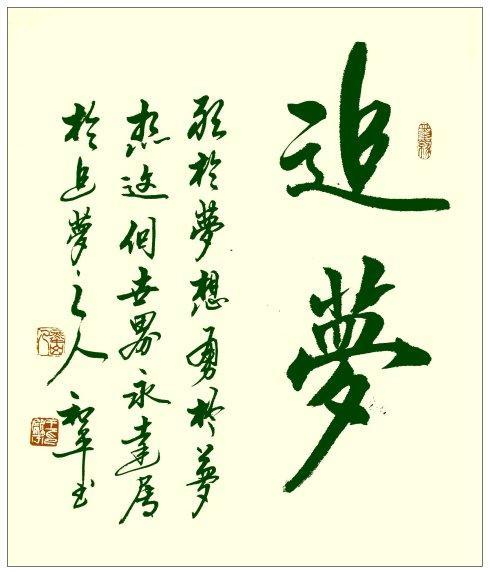 追夢
敢於夢想勇於夢
想這個世界永遠屬
於追夢之人 和平书